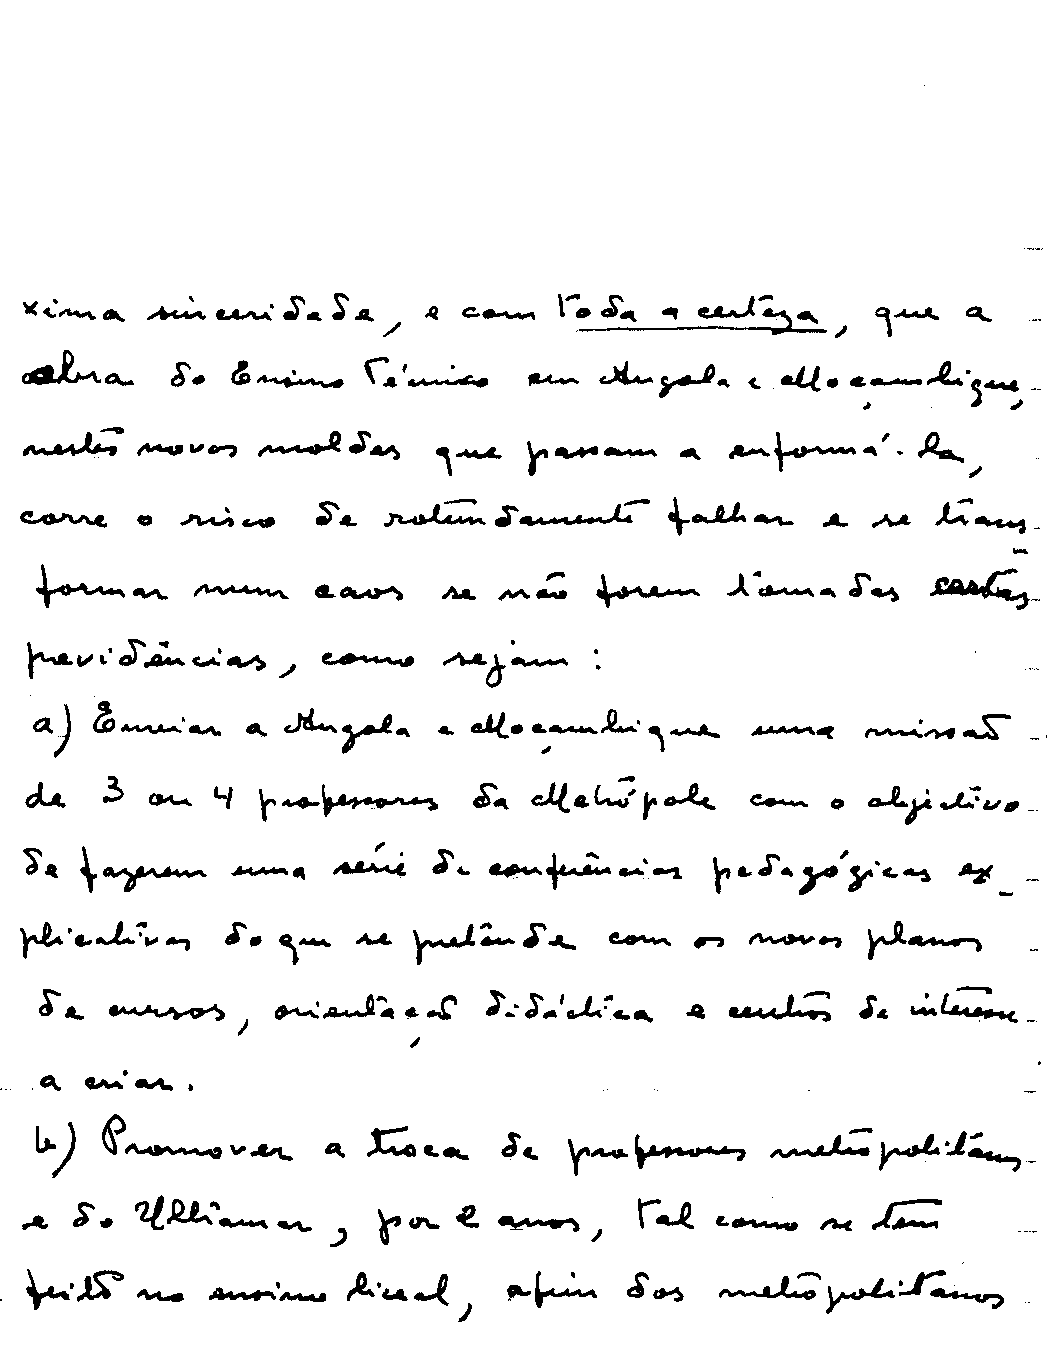 xima sinceridade, e com toda a certeza, que a
obra do Ensino Técnico em Angola e Moçambique,
nestes novos moldes que passam a enformá-la,
corre o risco de rotundamente falhar e se trans-
formar num caos se não forem tomadas certas
previdências, como sejam:
a) Enviar a Angola e Moçambique uma missão
de 3 ou 4 professores da Metrópole com o objectivo
de fazerem uma série de conferências pedagógicas ex-
plicativas do que se pretende com os novos planos
de cursos, orientação didáctica e centros de interesse
a criar.
b) Promover a troca de professores metropolitanos
e do Ultramar, por 2 anos, tal como se tem
feito no ensino liceal, afim dos metropolitanos